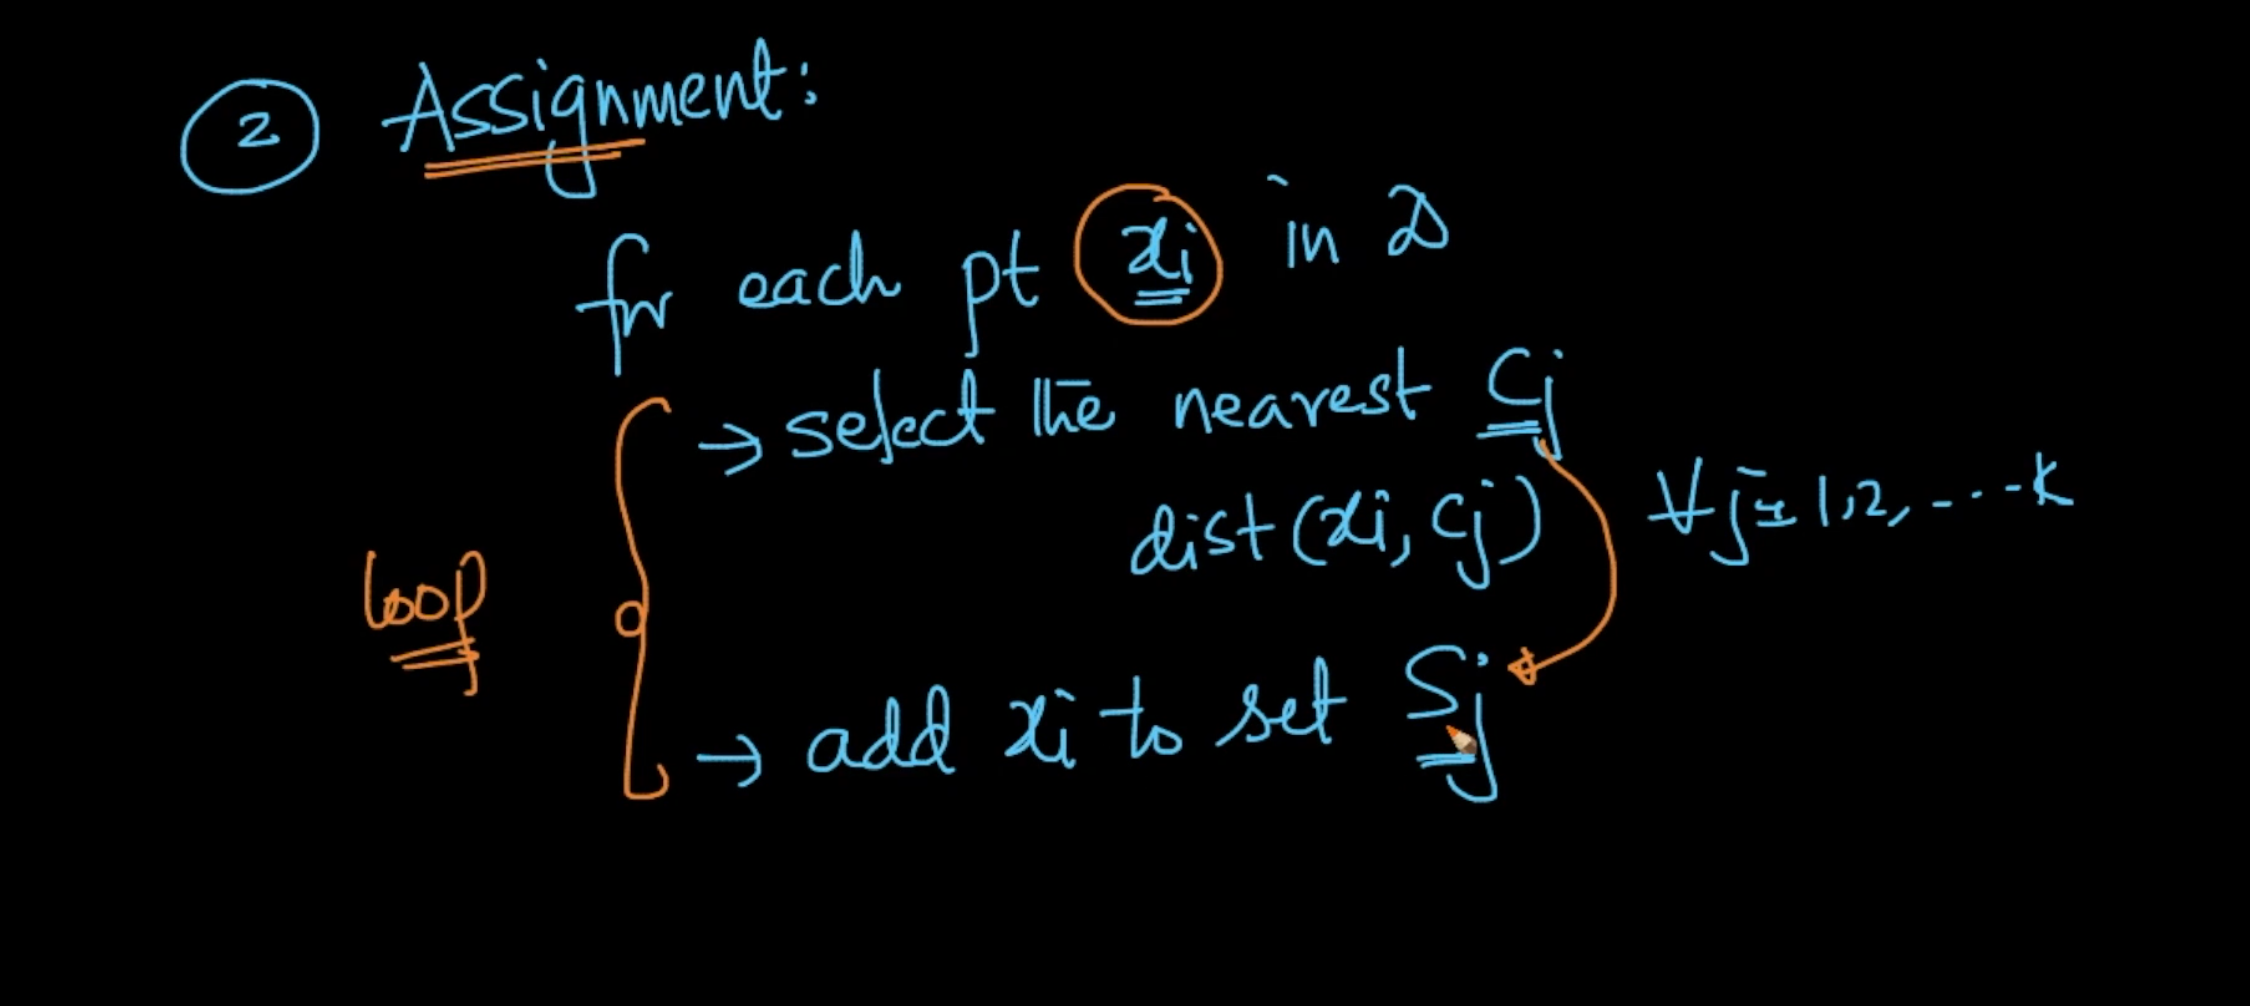 2 Assignment:
for each pt xi in D
→ select the nearest Cj
dist(xi, Cj) ∀ j = 1,2, ....k
loop
→ add xi to set Sj